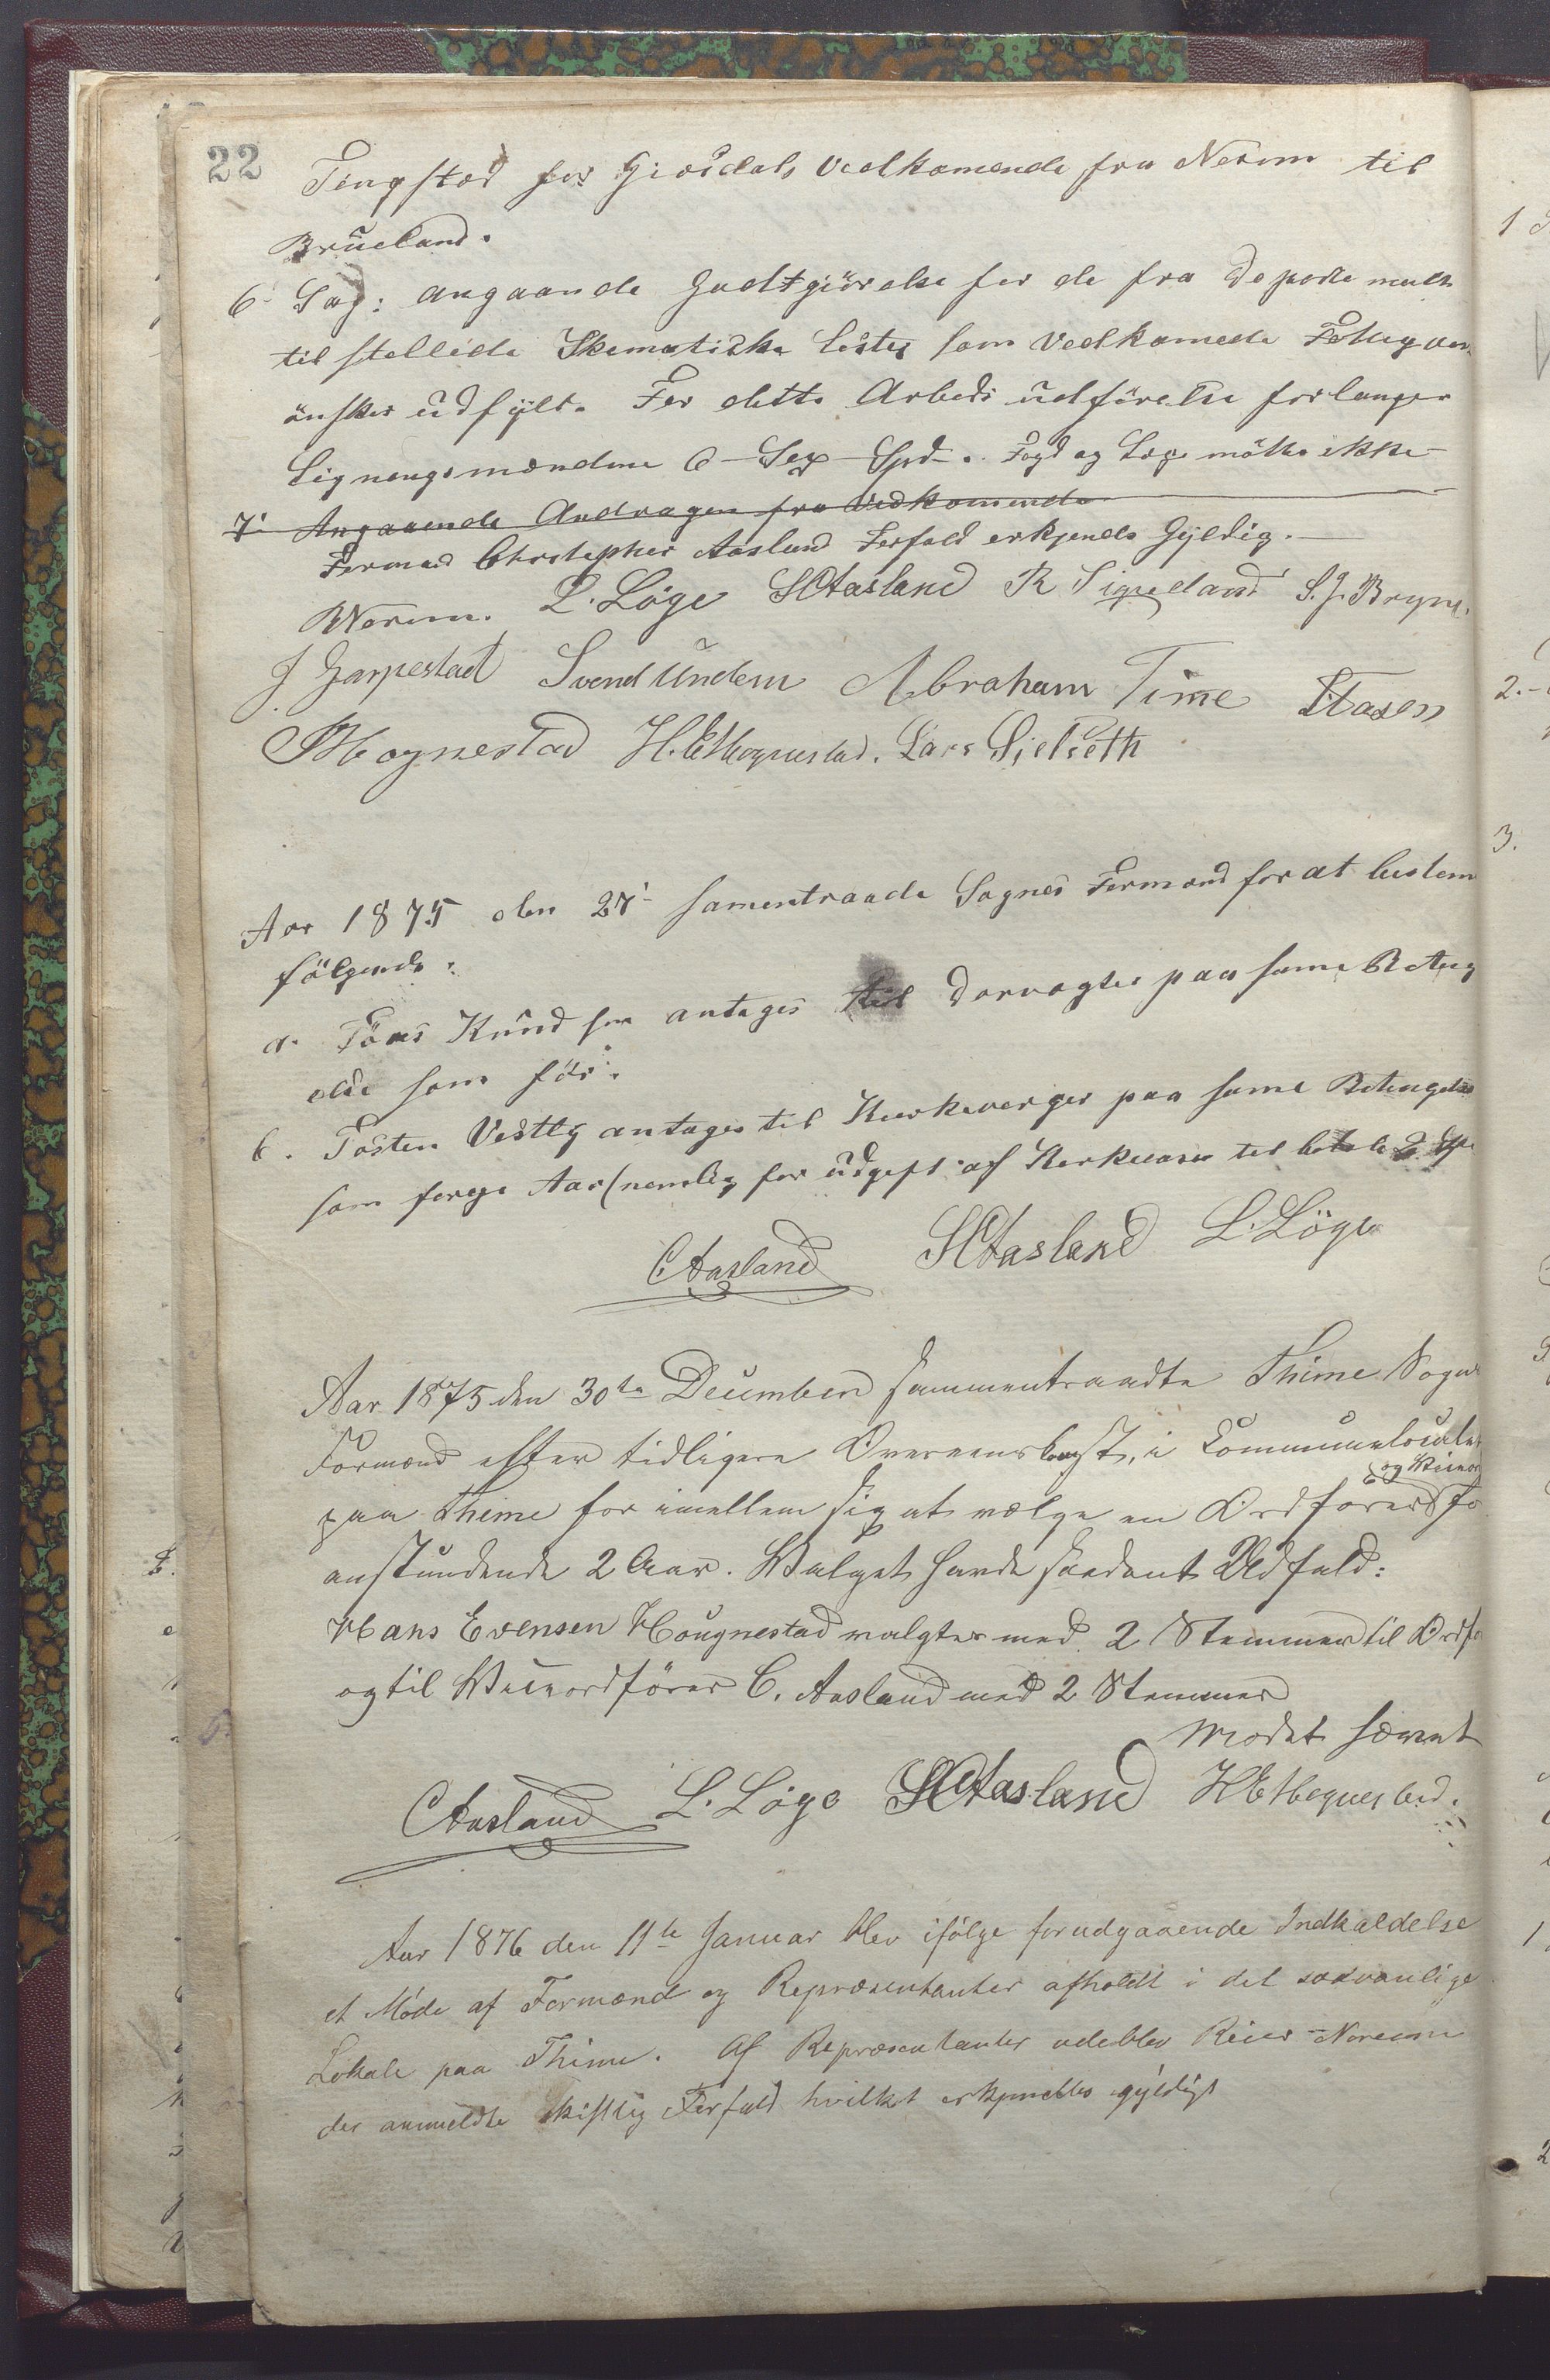 22
Tingstod for Giesdals vedkomende fra Nerem til
Brueland.
6 Sag: angaaende Godtgiörelse for de fra
til stellede Skematiske Lister som Vedkomede
önsker udfylt. For dette Arbeds udförelse forlanger
Ligningsmændene 6 - Sex - Spd. Fogd og Loge mötte ikke
7 Angaaende Andragen fra Vedkomende
Formand Christopher Aasland Forfald erkjendes Gyldig.
Nerem. L. Löge SCAasland R Sigvedland S.J. Bryne.
J Garpestad Svend Undem Abraham Time
Hognestad H.E.Hognestad. Lars Sjelseth
Aar 1875 den 27 samentraade Sognes Formænd for at bestem
fölgende:
a. Töres Knudsen antages til Dorvogter paa same Beting
else som för.
b. Tosten Vestly antages til Kierkeverger paa same Betingelse
som forege Aar (nemlig for Udgeft af Kerkeovn
CAasland SCAasland L. Löge
Aar 1875 den 30te December sammentraadte Thime Sogne
Formænd efter tidligere Overenskomst, i Communelocalet
og Viceor
paa Thime for imellem sig at vælge en Ordforer fo
anstundende 2 Aar. Valget havde saadant Udfald:
Hans Evensen Hougnestad valgtes med 2 Stemmer til Ordfo
og til Viceordförer C. Aasland med 2 Stemmer
Modet hævet
CAasland L. Löge SCAasland HEHognestad.
Aar 1876 den 11te Januar blev ifölge forudgaaende Indkaldelse
et Möde af Formænd og Repræsentanter afholdt i det sædvanlige
Lokale paa Thime. Af Repræsentanter udeblev Reier Nereim
der anmeldte skiftlig Forfald hvilket erkjendtes gyldigt